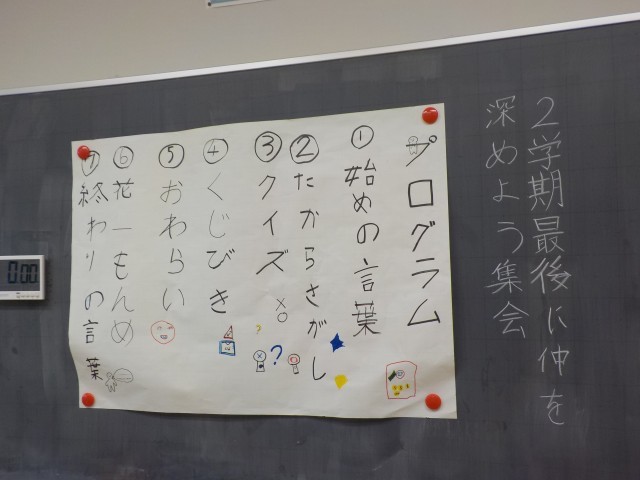 2学期最後に仲を
深めよう集会
プログラム
①始めの言葉
②たからさがし
③クイズ
④くじびき
⑤おわらい
⑥花一もんめ
⑦終わりの言葉